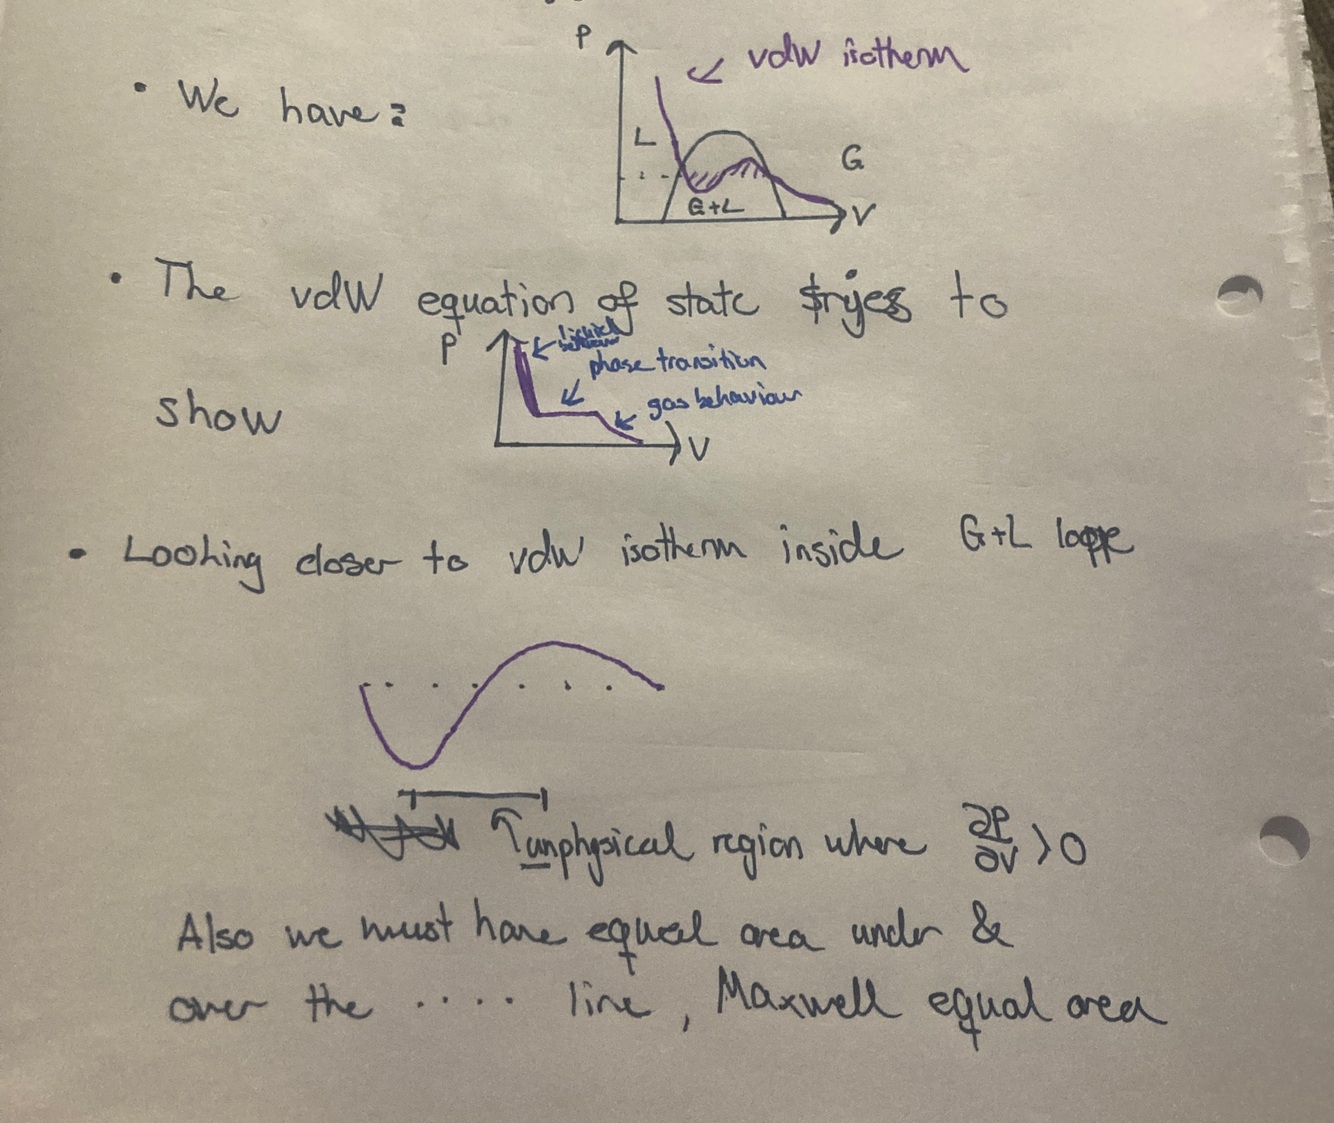 P
vdw isotherm
• We have:
L
G
G+L
V
• The vdW equation of state tryes to
P
liquid
behaviour
phase transition
gas behaviour
show
V
• Looking closer to vdw isotherm inside G+L loope
unphysical region where ∂P/∂V >0
Also we must have equal area under &
over the ···· line, Maxwell equal area